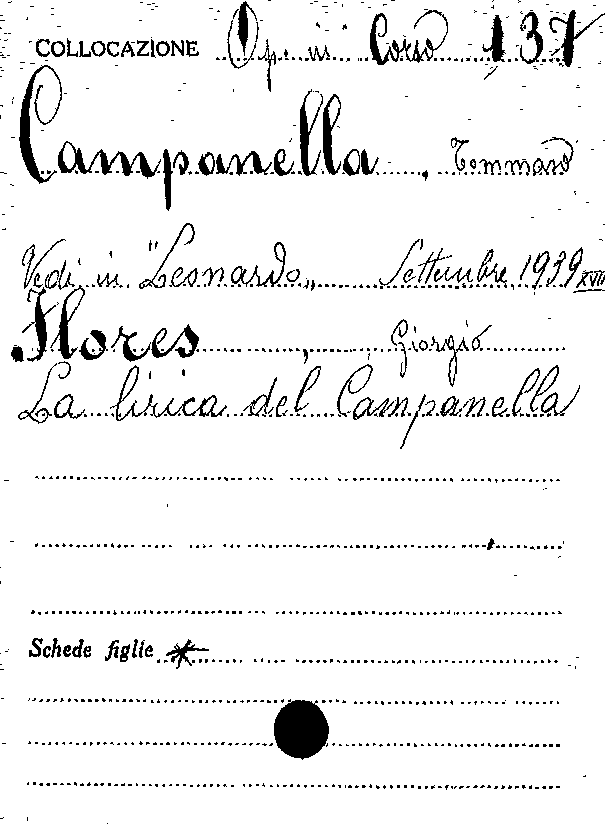 COLLOCAZIONE Op. in Corso 137
Campanella, Tommaso
Vedi in "Leonardo„ Settembre 1939 XVII
Flores, Giorgio
La lirica del Campanella
Schede figlie *